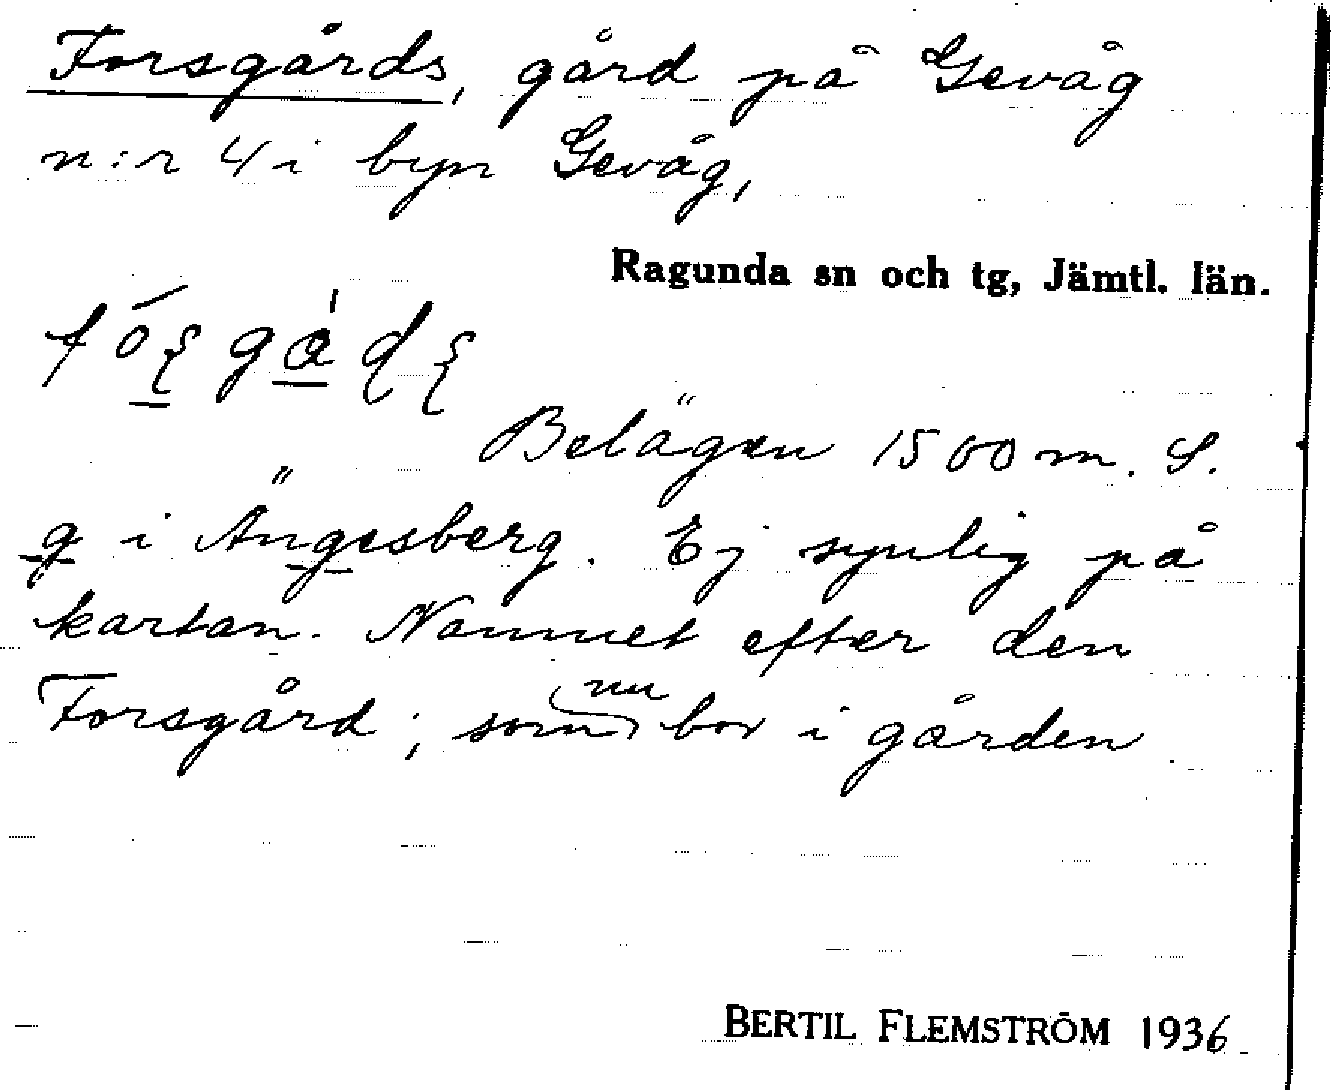 Forsgårds, gård på Gevåg
n:r 4 i byn Gevåg,
Ragunda sn och tg, Jämtl. län.
Belägen 1500 m. S.
g i Ängesberg. Ej synlig på
kartan. Namnet efter den
Forsgård, som nu bor i gården
BERTIL FLEMSTRÖM 1936